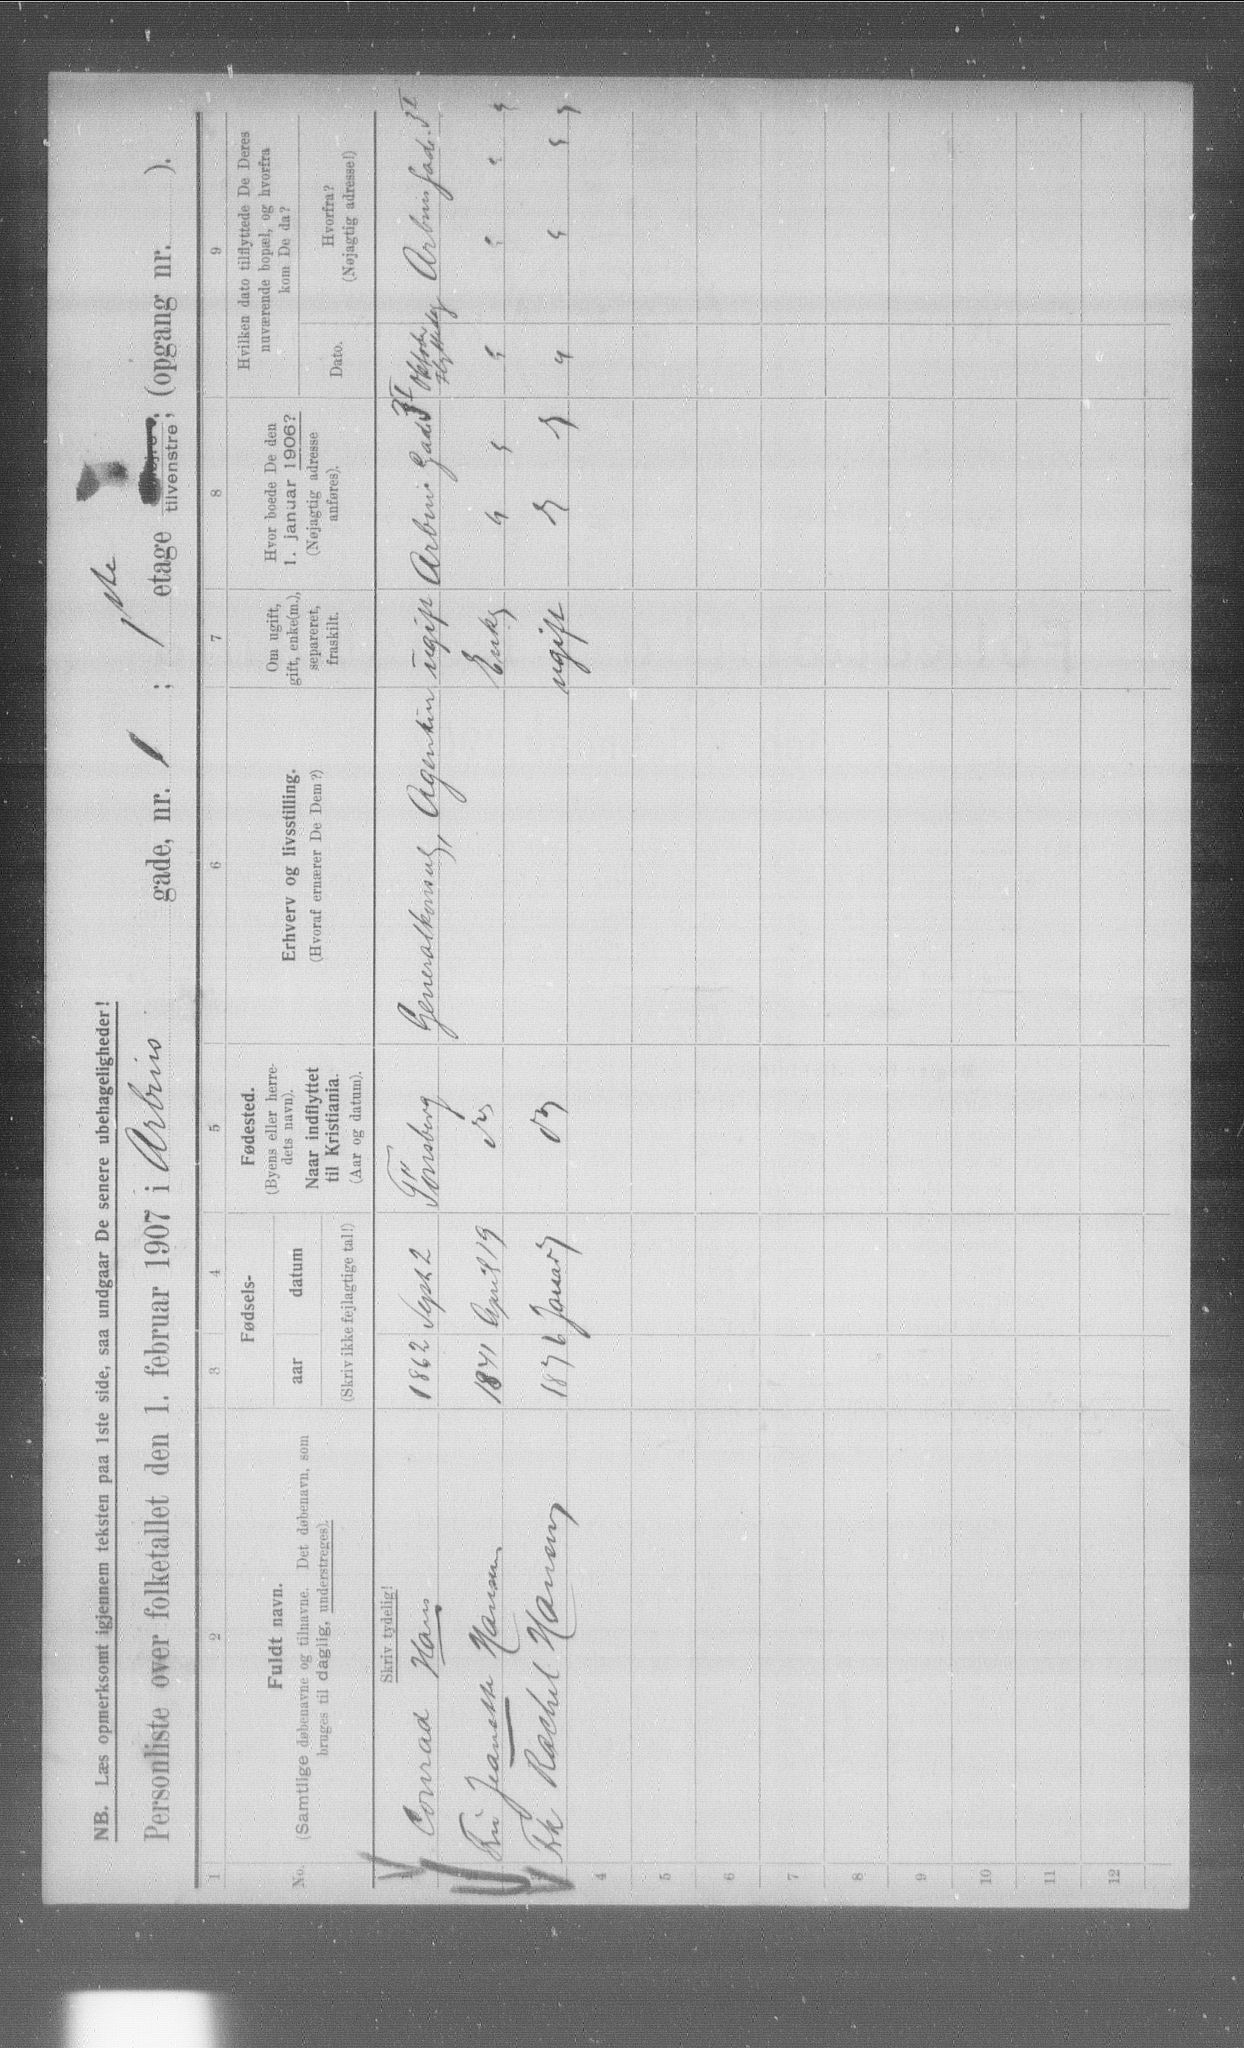 NB. Læs opmerksomt igjennem teksten paa 1ste side, saa undgaar De senere ubehageligheder!
Personliste over folketallet den 1. februar 1907 i Arbins gade, nr. 1 ; 1ste etage tilvenstre; (opgang nr. ).
1 2 3 4 5 6 7 8 9
No.
Fuldt navn.
(Samtlige døbenavne og tilnavne. Det døbenavn, som
bruges til daglig, understreges).
Fødsels-
aar datum
(Skriv ikke fejlagtige tal!)
Fødested.
(Byens eller herre-
dets navn).
Naar indflyttet
til Kristiania.
(Aar og datum).
Erhverv og livsstilling.
(Hvoraf ernærer De Dem?)
Om ugift,
gift, enke(m.),
separeret,
fraskilt.
Hvor boede De den
1. januar 1906?
(Nøjagtig adresse
anføres).
Hvilken dato tilflyttede De Deres
nuværende bopæl, og hvorfra
kom De da?
Dato.
Hvorfra?
(Nøjagtig adresse!)
Skriv tydelig!
1 Conrad Hans 1862 Sept 2 Tönsberg Generalkonsul, Agentur ugift Arbins Gade Arbins Gade
2 Jeanette Hansen 1841 April 19 Enke " " " " " "
3 Rachel Hansen 1876 Januar ugift " " " " "
4
5
6
7
8
9
10
11
12